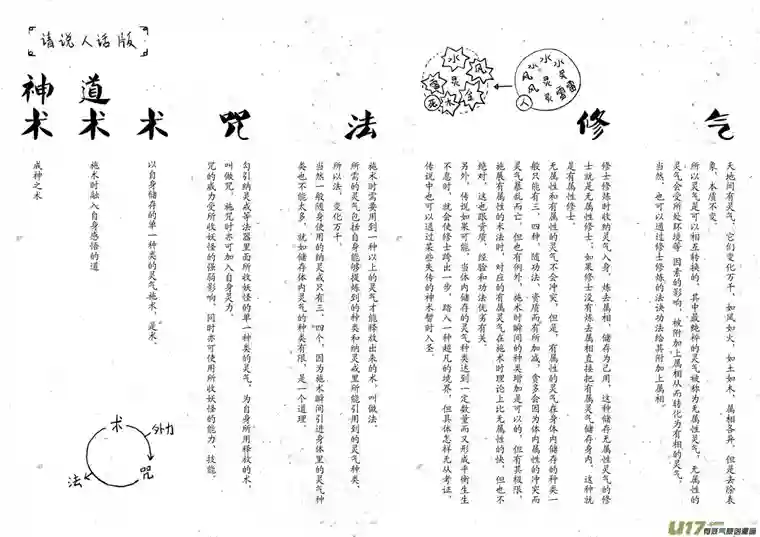 请说人话版
气
天地间有灵气，它们变化万千，如风如火，如土如木，属相各异，但是去除表
象，本质不变。
所以灵气是可以相互转换的，其中最纯粹的灵气被称为无属性灵气，无属性
灵气会受所处环境等因素的影响，被附加上属相从而转化为有相的灵气。
当然，也可以通过修士修炼的法诀功法给其附加上属相。
修
修士修炼时收纳灵气入身，炼去属相，储存为己用，这种储存无属性灵气的修
士就是无属性修士；如果修士没有炼去属相直接把有属灵气储存身内，这种就
是有属性修士。
无属性和有属性的灵气不会冲突，但是，有属性的灵气在身体内储存的种类一
般只能有三、四种，随功法、资质而有所加减，贪多会因为体内属性的冲突而
灵气暴乱而亡，但也有例外，施术时瞬间的种类增加是可以的，但有其极限。
施展有属性的术法时，对应的有属灵气在施术时理论上比无属性的快，但也不
绝对，这也跟资质、经验和功法优劣有关。
另外，传说如果可能，当体内储存的灵气种类达到一定数量而又形成平衡生生
不息时，就会使修士跨出一步，踏入一种超凡的境界，但具体怎样无从考证，
传说中也可以通过某些失传的神术暂时入圣。
水
风
雷
灵
火
木
土
水 水
风 水 灵
风 灵 雷
灵 雷
人
法
施术时需要用到一种以上的灵气才能释放出来的术，叫做法。
所需的灵气包括自身能够提炼到的种类和纳灵戒里所能引用到的灵气种类，
所以法，变化万千。
当然一般随身使用的纳灵戒只有三、四个，因为施术瞬间引进身体里的灵气种
类也不能太多，就如储存体内灵气的种类有限，是一个道理。
咒
勾引纳灵戒等法器里面所收妖怪的单一种类的灵气，为自身所用释放的术，
叫做咒，施咒时亦可加入自身灵力。
咒的威力受所收妖怪的强弱影响，同时亦可使用所收妖怪的能力、技能。
术
以自身储存的单一种类的灵气施术，是术。
道术
施术时融入自身感悟的道
神术
成神之术
术
外力
咒
法
U17
有妖气原创漫画